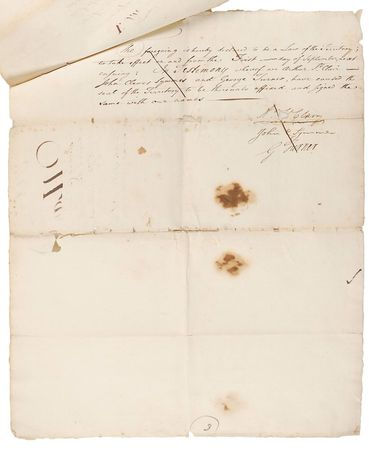 The foregoing is hereby declared to be a Law of the Territory;
to take effect on and from the First day of September, next
ensuing; In testimony whereof we Arthur St. Clair
John Cleves Symmes and George Turner, have caused the
seal of the Territory to be thereunto affixed and signed the
same with our names
Ar St Clair
John C Symmes
G Turner
3